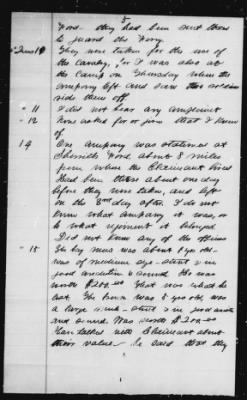 5
Ford. they had been sent there
to guard the Ferry.
They were taken for the use of
the Cavalry, for I was also at
the Camp on Thursday when the
company left and saw the soldiers
ride them off
11 I did not hear any complaint
12 None asked for or given that I knew
of
14 One company was stationed at
Sherrills Ford about 8 miles
from where the Claimant lived
Had been there about one day
before they were taken, and left
on the 3rd day after. I do not
know what company it was, or
to what regiment it belonged
Did not know any of the officers
15 The Grey mare was about 8 yrs old
was of medium size - stout & in
good condition & sound. He was
worth $200.00. That was what he
cost. The brown was 5 yrs old, was
a large sized - stout & in good condition
and sound. Was worth $200.00
Have talked with Claimant about
their value. he said that they